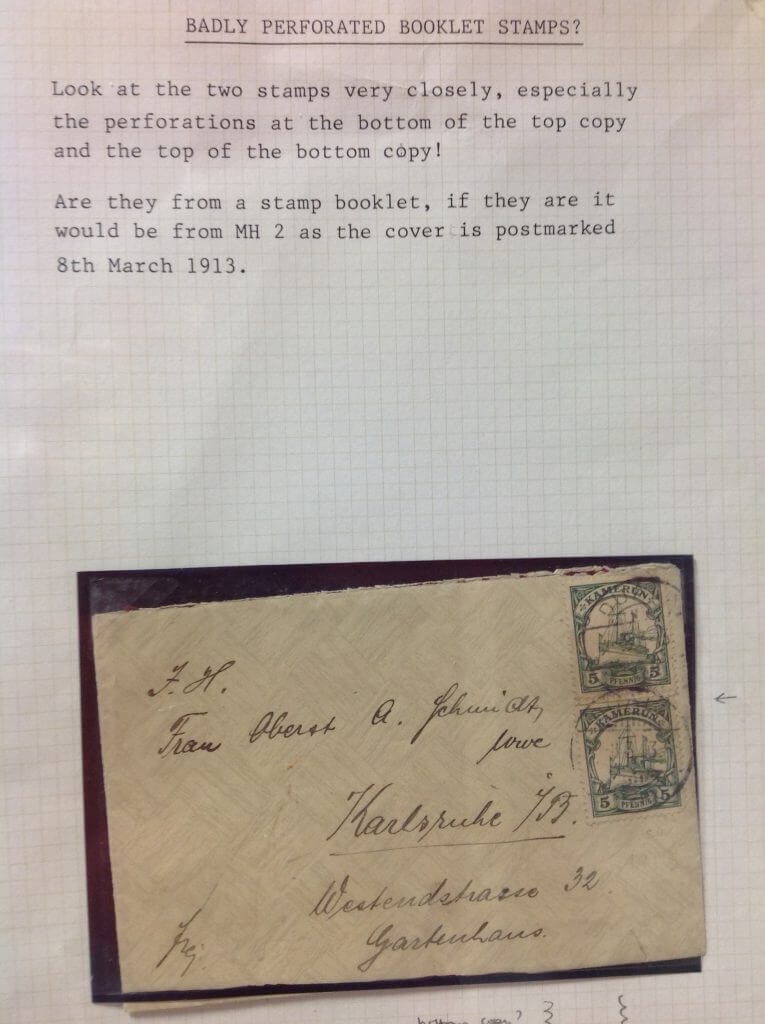 BADLY PERFORATED BOOKLET STAMPS?
Look at the two stamps very closely, especially
the perforations at the bottom of the top copy
and the top of the bottom copy!
Are they from a stamp booklet, if they are it
would be from MH 2 as the cover is postmarked
8th March 1913.
KAMERUN
5 PFENNIG 5
KAMERUN
5 PFENNIG 5
Frau Oberst A. Schmidt,
Wwe
Karlsruhe i/B.
Westendstrasse 32
Gartenhaus.